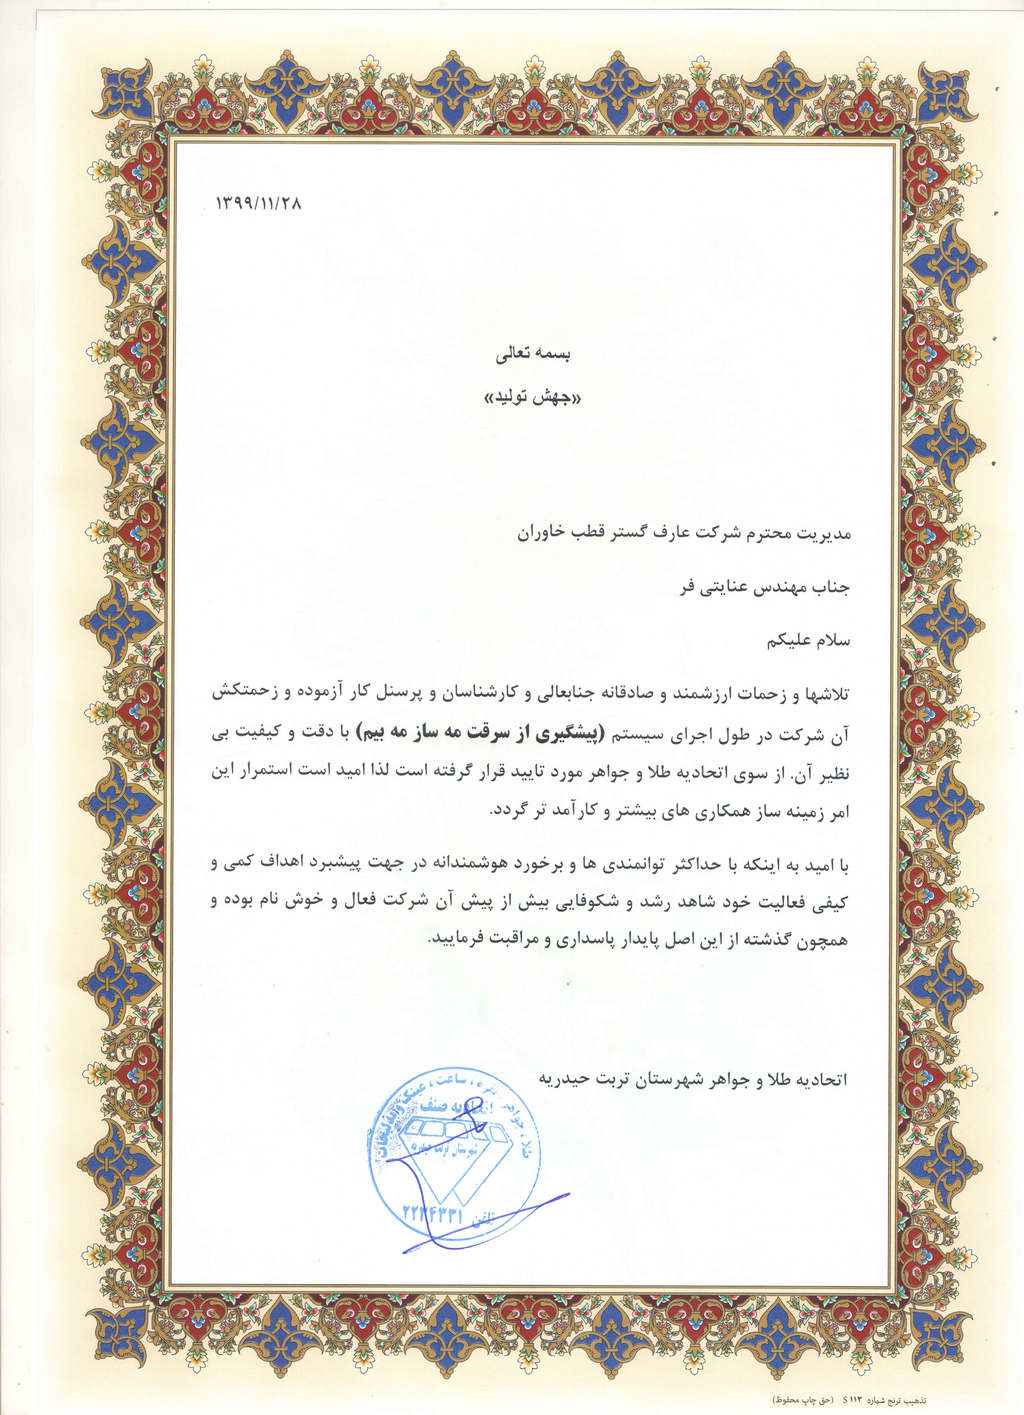 ۱۳۹۹/۱۱/۲۸
بسمه تعالی
«جهش تولید»
مدیریت محترم شرکت عارف گستر قطب خاوران
جناب مهندس عنایتی فر
سلام علیکم
تلاشها و زحمات ارزشمند و صادقانه جنابعالی و کارشناسان و پرسنل کار آزموده و زحمتکش
آن شرکت در طول اجرای سیستم (پیشگیری از سرقت مه ساز مه بیم) با دقت و کیفیت بی
نظیر آن. از سوی اتحادیه طلا و جواهر مورد تایید قرار گرفته است لذا امید است استمرار این
امر زمینه ساز همکاری های بیشتر و کارآمد تر گردد.
با امید به اینکه با حداکثر توانمندی ها و برخورد هوشمندانه در جهت پیشبرد اهداف کمی و
کیفی فعالیت خود شاهد رشد و شکوفایی بیش از پیش آن شرکت فعال و خوش نام بوده و
همچون گذشته از این اصل پایدار پاسداری و مراقبت فرمایید.
اتحادیه طلا و جواهر شهرستان تربت حیدریه
طلا ، جواهر ، نقره ، ساعت ، عینک
اتحادیه صنف
شهرستان تربت حیدریه
تلفن ۲۲۳۴۳۳۱
تذهیب ترنج شماره S ۱۱۳ (حق چاپ محفوظ)